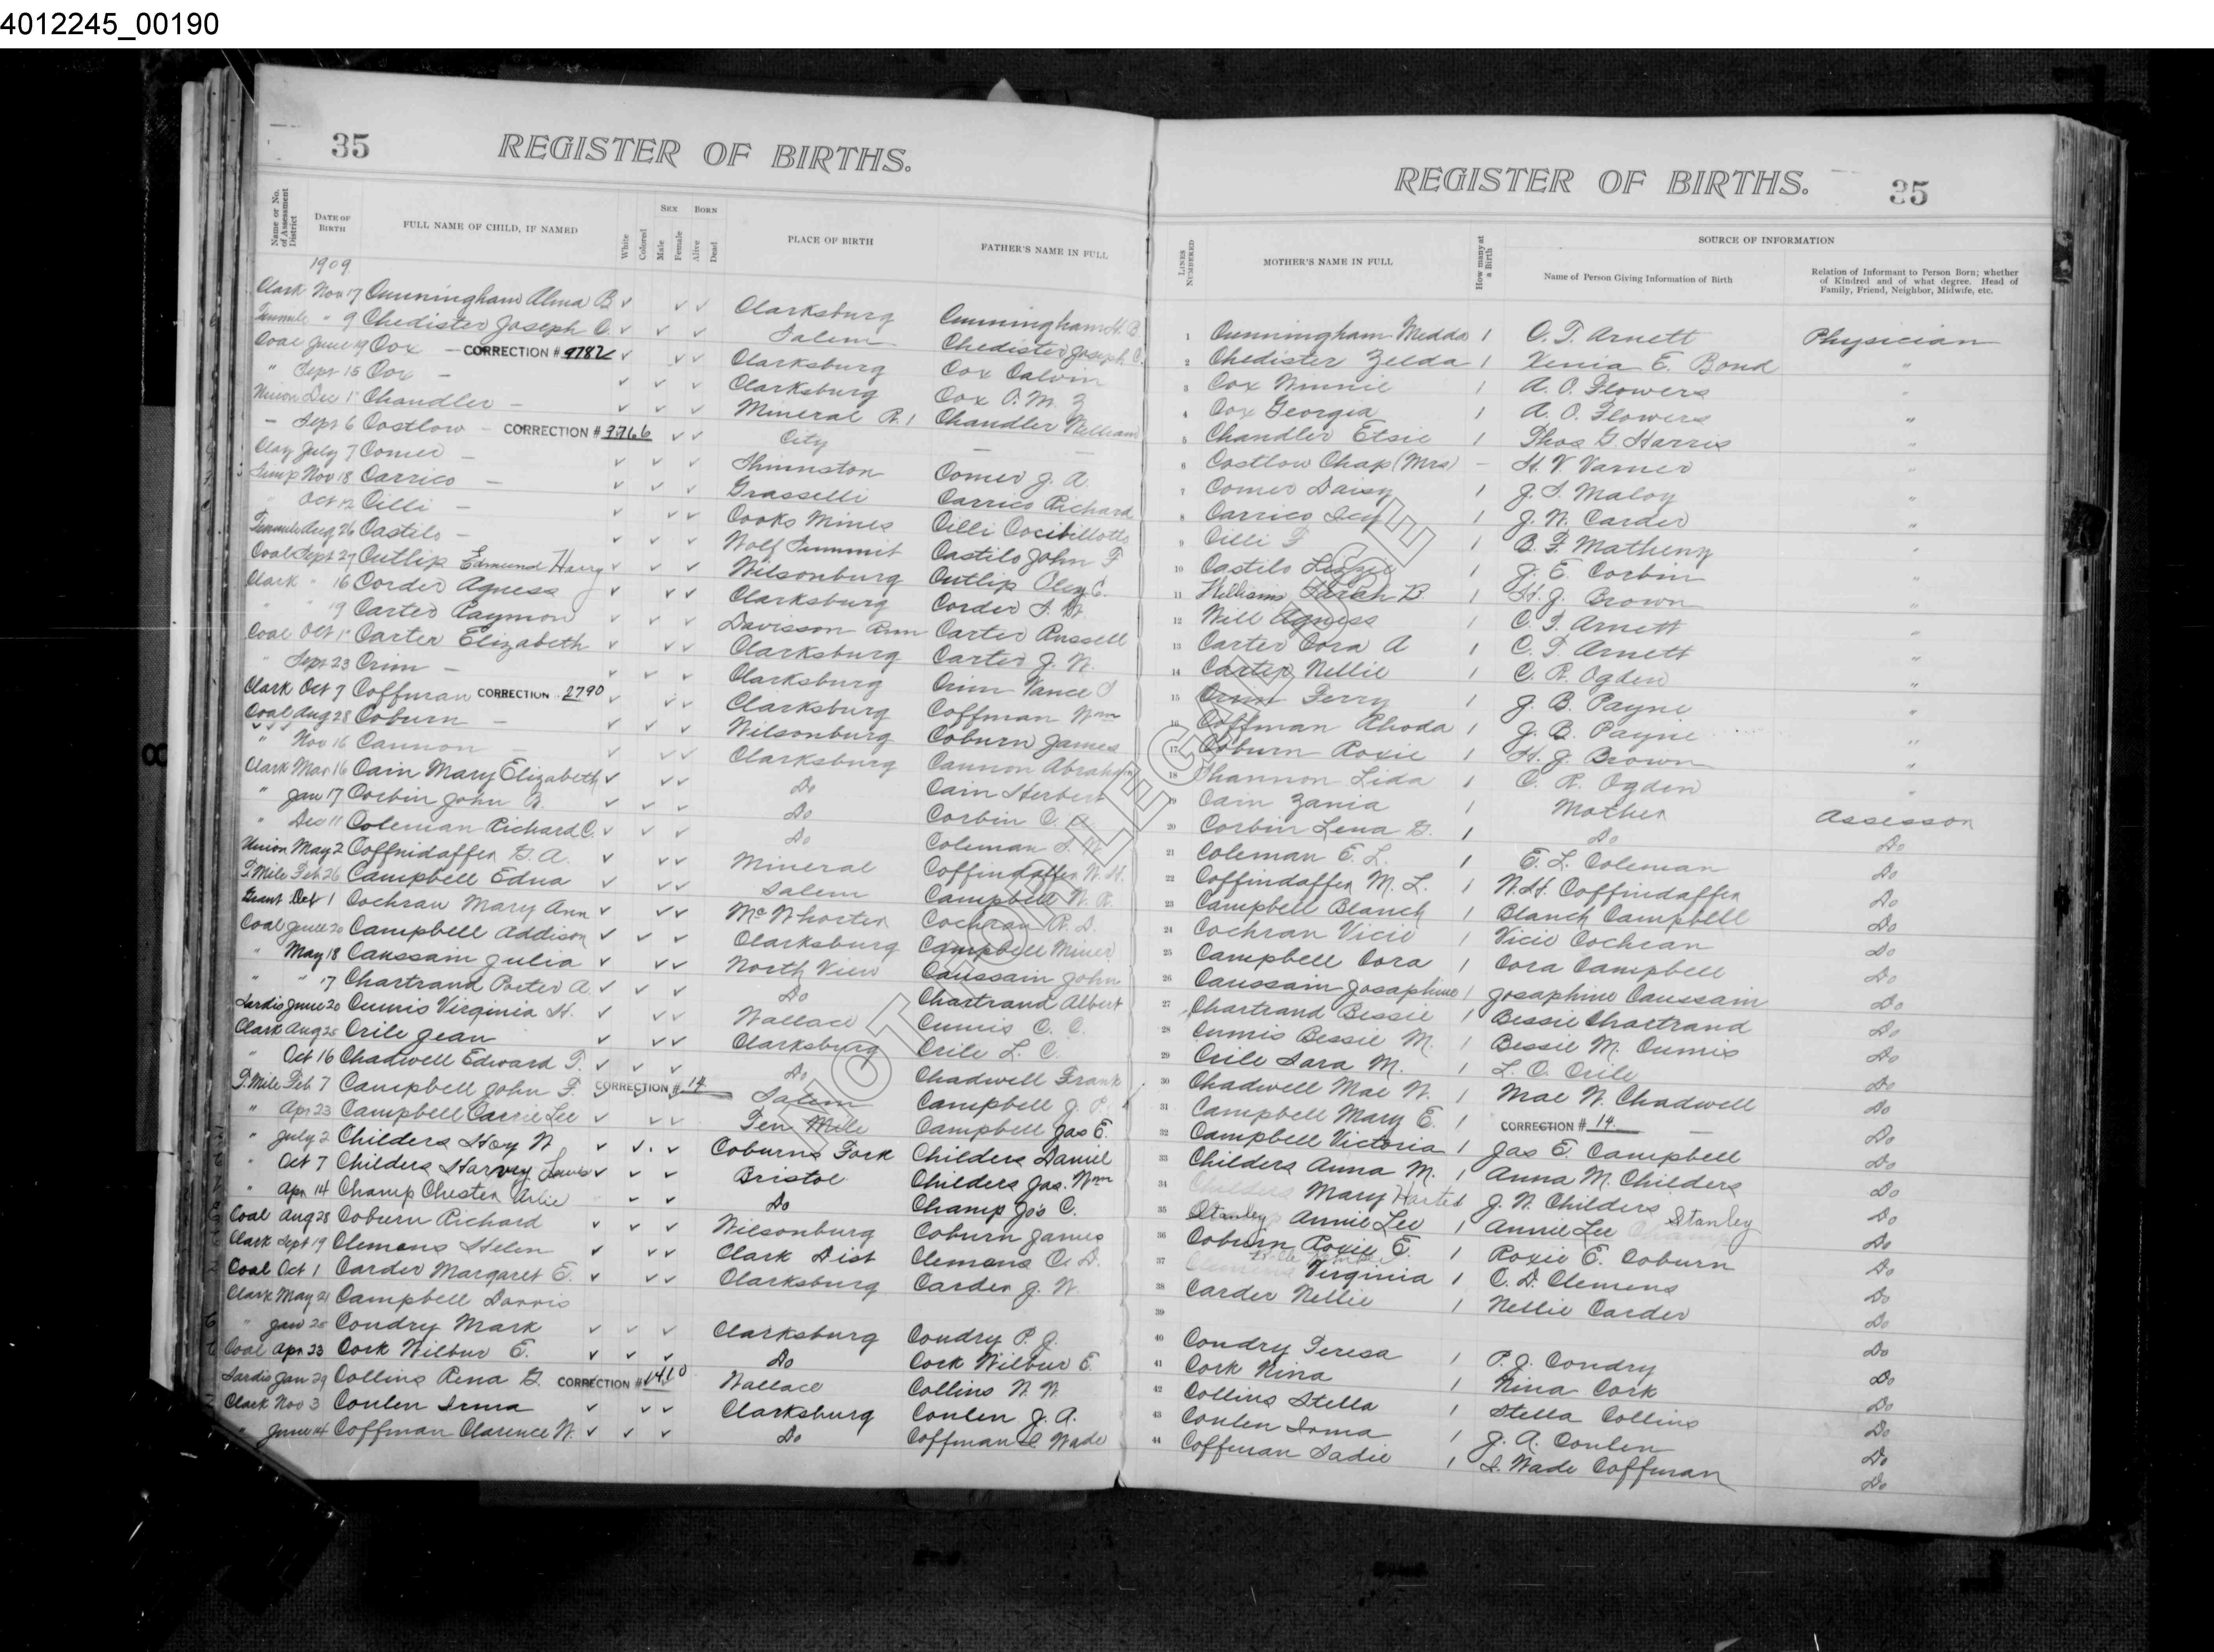 4012245_00190
35 REGISTER OF BIRTHS.
Name or No. of Assessment District
DATE OF BIRTH
FULL NAME OF CHILD, IF NAMED
White
Colored
SEX
Male
Female
BORN
Alive
Dead
PLACE OF BIRTH
FATHER'S NAME IN FULL
1909
Clark Nov 17 Cunningham Alma B. ✓ ✓ ✓ Clarksburg Cunningham H. B
Tenmile " 9 Chedister Joseph C. ✓ ✓ ✓ Salem Chedister Joseph C.
Coal June 19 Cox — CORRECTION # 9782 ✓ ✓ ✓ Clarksburg Cox Calvin
" Sept 15 Cox — ✓ ✓ ✓ Clarksburg Cox O. M. Z
Union Dec 1 Chandler — ✓ ✓ ✓ Mineral R. 1 Chandler William
— Sept 6 Costlow — CORRECTION # 7766 ✓ ✓ City —
Clay July 7 Comer — ✓ ✓ ✓ Shinnston Comer J. A.
Simp Nov 18 Carrico — ✓ ✓ ✓ Grasselli Carrico Richard
" Oct 12 Cilli — ✓ ✓ ✓ Cooks Mines Cilli
Tenmile Aug 26 Castilo — ✓ ✓ ✓ Wolf Summit Castilo John F
Coal Sept 27 Cutlip Edmund Harry ✓ ✓ ✓ Wilsonburg Cutlip Oley C.
Clark " 16 Corder Agness ✓ ✓ ✓ Clarksburg Corder S. W.
" " 19 Carter Raymon ✓ ✓ ✓ Davisson Run Carter Russell
Coal Oct 1 Carter Elizabeth ✓ ✓ ✓ Clarksburg Carter J. W.
" Sept 23 Crim — ✓ ✓ ✓ Clarksburg Crim Vance
Clark Oct 7 Coffman CORRECTION 2790 ✓ ✓ ✓ Clarksburg Coffman Wm
Coal Aug 28 Coburn — ✓ ✓ ✓ Wilsonburg Coburn James
" Nov 16 Cannon — ✓ ✓ ✓ Clarksburg Cannon Abraham
Clark Mar 16 Cain Mary Elizabeth ✓ ✓ ✓ Do Cain Herbert
" Jan 17 Corbin John B. ✓ ✓ ✓ Do Corbin C.
" Dec 11 Coleman Richard C. ✓ ✓ ✓ Do Coleman S. W.
Union May 2 Coffindaffer G. A. ✓ ✓ ✓ Mineral Coffindaffer W. H.
T. Mile Feb 26 Campbell Edna ✓ ✓ ✓ Salem Campbell W. R.
Grant Oct 1 Cochran Mary Ann ✓ ✓ ✓ McWhorter Cochran R. D.
Coal June 20 Campbell Addison ✓ ✓ ✓ Clarksburg Campbell Miner
" May 18 Caussain Julia ✓ ✓ ✓ North View Caussain John
" " 17 Chartrand Porter A. ✓ ✓ ✓ Do Chartrand Albert
Sardis June 20 Cumis Virginia H. ✓ ✓ ✓ Wallace Cumis C. C.
Clark Aug 25 Crile Jean ✓ ✓ ✓ Clarksburg Crile L. C.
" Oct 16 Chadwell Edward T. ✓ ✓ ✓ Do Chadwell Frank
T. Mile Feb 7 Campbell John F. CORRECTION # 14 Salem Campbell J. P.
" Apr 23 Campbell Carrie Lee ✓ ✓ ✓ Ten Mile Campbell Jas E.
" July 2 Childers Hoy W ✓ ✓ ✓ Coburns Fork Childers Daniel
" Oct 7 Childers Harvey Lewis ✓ ✓ ✓ Bristol Childers Jas. Wm
" Apr 14 Champ Chester Arlie ✓ ✓ Do Champ Jos C.
Coal Aug 28 Coburn Richard ✓ ✓ ✓ Wilsonburg Coburn James
Clark Sept 19 Clemens Helen ✓ ✓ ✓ Clark Dist Clemens C. D.
Coal Oct 1 Carder Margaret E. ✓ ✓ ✓ Clarksburg Carder J. W.
Clark May 21 Campbell Dorris
" Jan 25 Condry Mark ✓ ✓ ✓ Clarksburg Condry P. J.
Coal Apr 23 Cork Wilbur E. ✓ ✓ ✓ Do Cork Wilbur E.
Sardis Jan 29 Collins Rena G. CORRECTION # 1410 Wallace Collins W. W.
Clark Nov 3 Conlen Irma ✓ ✓ ✓ Clarksburg Conlen J. A.
" June 14 Coffman Clarence W. ✓ ✓ ✓ Do Coffman I. Wade
REGISTER OF BIRTHS. 35
LINES NUMBERED
MOTHER'S NAME IN FULL
How many at a Birth
SOURCE OF INFORMATION
Name of Person Giving Information of Birth
Relation of Informant to Person Born; whether
of Kindred and of what degree. Head of
Family, Friend, Neighbor, Midwife, etc.
1 Cunningham Medda 1 C. T. Arnett Physician
2 Chedister Zelda 1 Xenia E. Bond "
3 Cox Minnie 1 A. O. Flowers "
4 Cox Georgia 1 A. O. Flowers "
5 Chandler Etsie 1 Thos G. Harris "
6 Costlow Chap (Mrs) — H. V. Varner "
7 Comer Daisy 1 J. S. Maloy "
8 Carrico Icy 1 J. W. Carder "
9 Cilli F 1 B. F. Matheny "
10 Castilo Lizzie 1 J. E. Corbin "
11 Williams Sarah B. 1 H. J. Brown "
12 Will Agness 1 C. T. Arnett "
13 Carter Cora A 1 C. T. Arnett "
14 Carter Nellie 1 C. R. Ogden "
15 Crim Gerry 1 J. B. Payne "
16 Coffman Rhoda 1 J. B. Payne "
17 Coburn Roxie 1 H. J. Brown "
18 Shannon Lida 1 C. R. Ogden "
19 Cain Zania 1 Mother Assessor
20 Corbin Lena G. 1 Do Do
21 Coleman E. L. 1 E. L. Coleman Do
22 Coffindaffer M. L. 1 W. H. Coffindaffer Do
23 Campbell Blanch 1 Blanch Campbell Do
24 Cochran Vicie 1 Vicie Cochran Do
25 Campbell Cora 1 Cora Campbell Do
26 Caussain Josaphine 1 Josaphine Caussain Do
27 Chartrand Bessie 1 Bessie Chartrand Do
28 Cumis Bessie M. 1 Bessie M. Cumis Do
29 Crile Sara M. 1 L. C. Crile Do
30 Chadwell Mae W. 1 Mae W. Chadwell Do
31 Campbell Mary E. 1 CORRECTION # 14 — Do
32 Campbell Victoria 1 Jas E. Campbell Do
33 Childers Anna M. 1 Anna M. Childers Do
34 Childers Mary 1 J. W. Childers Do
35 Stanley Annie Lee 1 Annie Lee Stanley Do
36 Coburn Roxie E. 1 Roxie E. Coburn Do
37 Virginia 1 C. D. Clemens Do
38 Carder Nellie 1 Nellie Carder Do
39
40 Condry Teresa 1 P. J. Condry Do
41 Cork Nina 1 Nina Cork Do
42 Collins Stella 1 Stella Collins Do
43 Conlen Irma 1 J. A. Conlen Do
44 Coffman Sadie 1 I. Wade Coffman Do